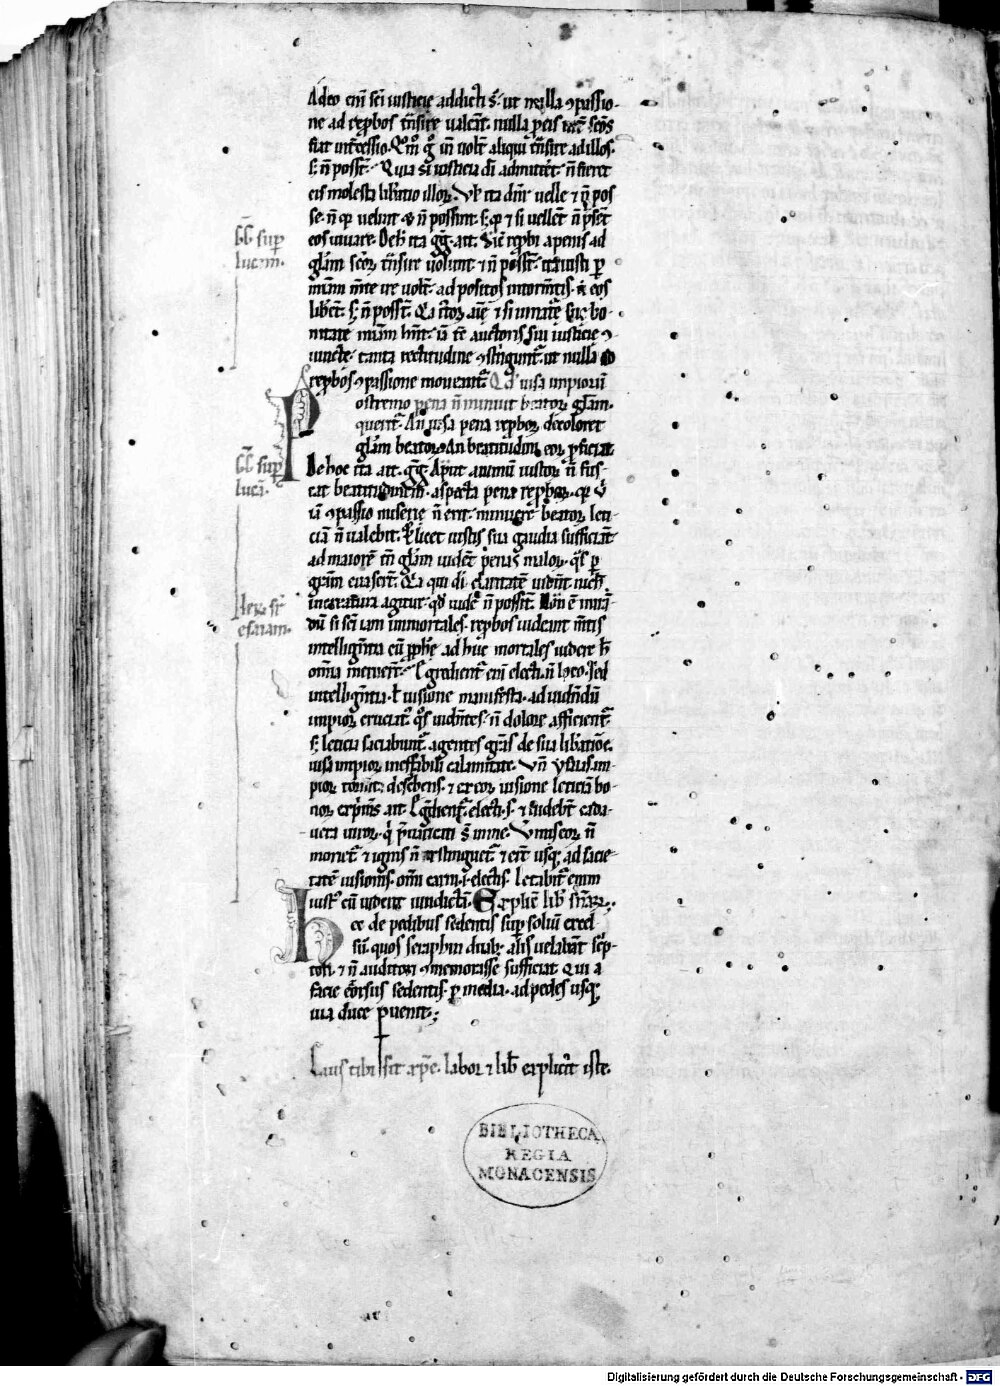 Adeo eni sci iusticie addicti s̄. ut nulla ꝯpassio-
ne ad reꝓbos t̄nsire ualeāt. nulla ꝓ eis
fiat int̄cessio. Qm̄o gͦ uolt aliqui t̄nsire ad illos.
s; n̄ posst̄. Quia si iusticia di admittēt. n̄ fieret
eis molesta lib̄atio illoꝝ. Vl̓ ita dnr̄ uelle ⁊ n̄ pos
se. n̄ qͥ uelint ⁊ n̄ possint. s; qͥ ⁊ si uellēt n̄ possēt
eos iuuare. De h̓ ita gg̓. ait. Sic reꝓbi a penis ad
gl̄am scoꝝ t̄nsire uolunt ⁊ n̄ posst̄. ita iusti ꝑ
mi͞am m̄te ire uolt̄. ad positos in torm̄tis. ⁊ eos
lib̓are. s; n̄ posst̄. Qa iustoꝝ aīe ⁊ si in nature sue bo-
nitate mi͞am hn̄t. iā tn̄ auctoris sui iusticie ꝯ
iuncte. tanta rectitudine ꝯst̓ingunt̄. ut nulla ad
reꝓbos ꝯpassione moueant̄. Qd̓ uisa impioꝝ
pena n̄ minuit beatoꝝ gl̄am.
Postremo querit̄. An uisa pena reꝓboꝝ decoloret
gl̄am beatoꝝ. An beatitudini eoꝝ ꝓficiat
De hoc ita ait. gg̓. Apud animū iustoꝝ n̄ fus-
cat beatitudinem. aspecta pena reꝓboꝝ. qͥ u̓
iā ꝯpassio miserie n̄ erit. minuere beatoꝝ leti-
ciā n̄ ualebit. Et licet iustis sua gaudia sufficiāt
ad maiorē tn̄ gl̄am uidēt penas maloꝝ. q̄s ꝑ
gr̄am euaserūt. Qa qui di claritatē uidēt. nich̓
in creatura agitur. qd̓ uidē n̄ possint. Non ē miran-
dū si sci iam immortales. reꝓbos uideant m̄tis
intelligentia cū ꝓphe adhuc mortales uidere h̓
omia meruer̄t. Egredient̄ eni electi. n̄ loco. sed
intelligentia. l̓ uisione manifesta. ad uidendū
impioꝝ cruciat̓. q̄s uidentes. n̄ dolore afficient̄
s; leticia saciabunt̄. agentes gr̄as de sua lib̓atiōe.
uisa impioꝝ ineffabili calamitate. Vn̄ ysaias im-
pioꝝ torm̄ta describens. ⁊ ex eoꝝ uisione leticiā bo-
noꝝ exp̓mens ait. Eg̓dient̄. electi. s. ⁊ uidebt̄ cada-
uera uiroꝝ. q̓ p̓uaricati s̄ in me. V̓mis eoꝝ n̄
moriet̄ ⁊ ignis n̄ extinguet̄. ⁊ erit usq; ad sacie-
tatē uisionis. omi carni. i. electis. Letabit̄ enim
iust̓ cū uiderit uindictā. Explic̄ lib̓
Hec de pedibus sedentis sup̱ soliū excel
sū. quos seraphin duab; alis uelabāt scͥp-
tori. ⁊ n̄ auditori ꝯmemorasse sufficiat. Qui a
facie exorsus sedentis. ꝑ media. ad pedes usq;
uia duce ꝑuenit.
Laus tibi sit xp̄e. labor ⁊ lib̓ explicit iste.
gg̓ sup̱
lucam.
gg̓ sup̱
lucā.
Iero. sr̄
esaiam.
BIBLIOTHECA
REGIA
MONACENSIS
Digitalisierung gefördert durch die Deutsche Forschungsgemeinschaft - DFG